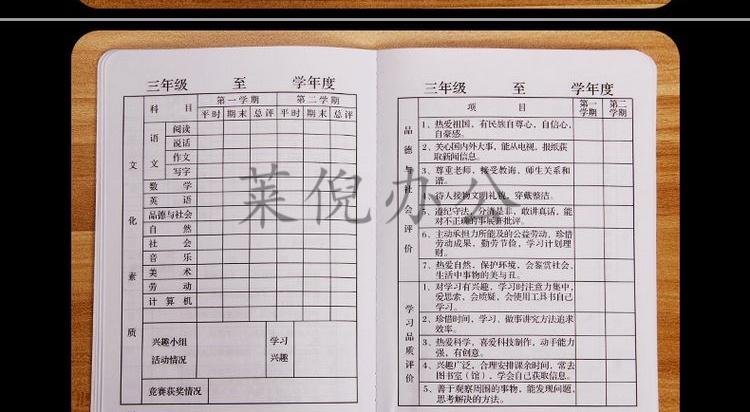 三年级 至 学年度
文化素质
科 目 第一学期 第二学期
平时 期末 总评 平时 期末 总评
语文
阅读
说话
作文
写字
数 学
英 语
品德与社会
自 然
社 会
音 乐
美 术
劳 动
计 算 机
兴趣小组
活动情况
学习
兴趣
竞赛获奖情况
三年级 至 学年度
项 目 第一学期 第二学期
品德与社会评价
1、热爱祖国，有民族自尊心，自信心，
自豪感。
2、关心国内外大事，能从电视，报纸获
取新闻信息。
3、尊重老师，接受教诲，师生关系和
谐。
4、待人接物文明礼貌，穿戴整洁。
5、遵纪守法，分清是非，敢讲真话，能
对不正确的事展开批评。
6、主动承担力所能及的公益劳动，珍惜
劳动成果，勤劳节俭，学习计划理
财。
7、热爱自然，保护环境，会鉴赏社会、
生活中事物的美与丑。
学习品质评价
1、对学习有兴趣，学习时注意力集中，
爱思索，会质疑，会使用工具书自己
学习。
2、珍惜时间，学习、做事讲究方法追求
效率。
3、热爱科学，喜爱科技制作，动手能力
强，有创意。
4、兴趣广泛，合理安排课余时间，常去
图书室（馆），学会自己获取信息。
5、善于观察周围的事物，能发现问题，
思考解决的方法。
莱倪办公